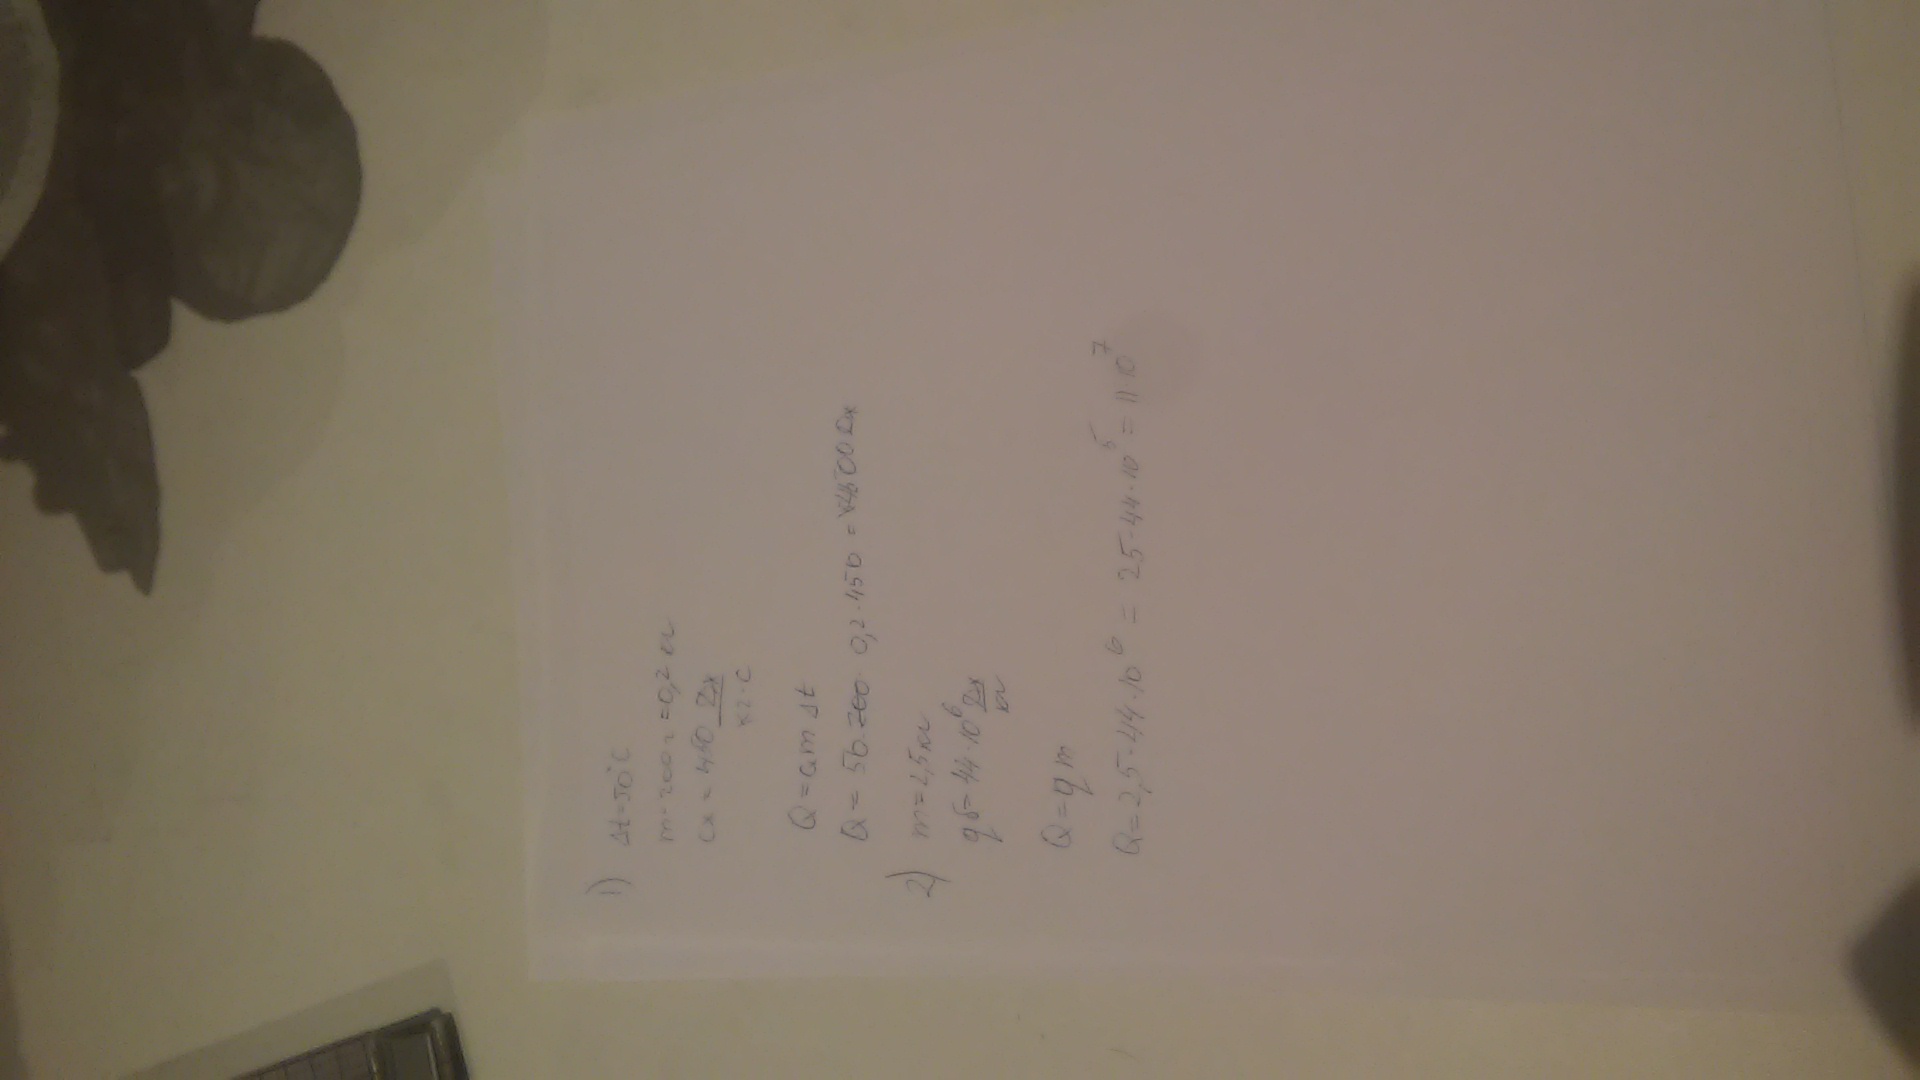 1) Δt=50°C
m=200г=0,2 кг
Cж = 460 Дж
кг·C
Q = cm Δt
Q = 50· 0,2·450 = 4500 Дж
2) m=2,5 кг
qб=44·10⁶ Дж
кг
Q=qm
Q=2,5·44·10⁶ = 25·44·10⁵ = 11·10⁷